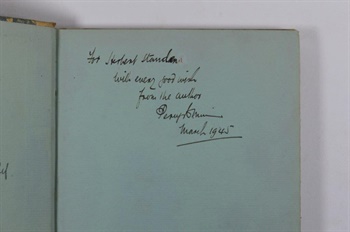 For Herbert Standen
with every good wish
from the author
Percy
March 1945